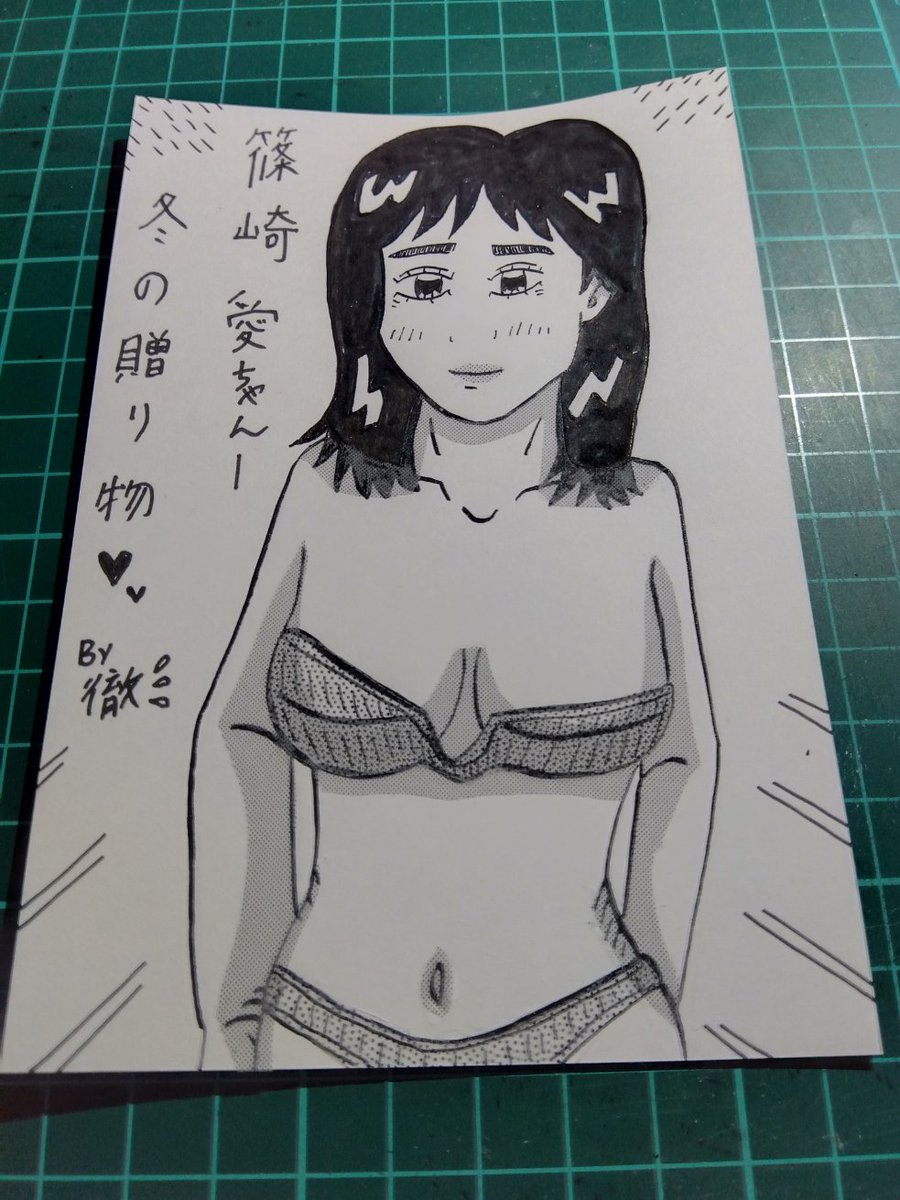 篠崎愛ちゃんー
冬の贈り物♥♥
By
徹